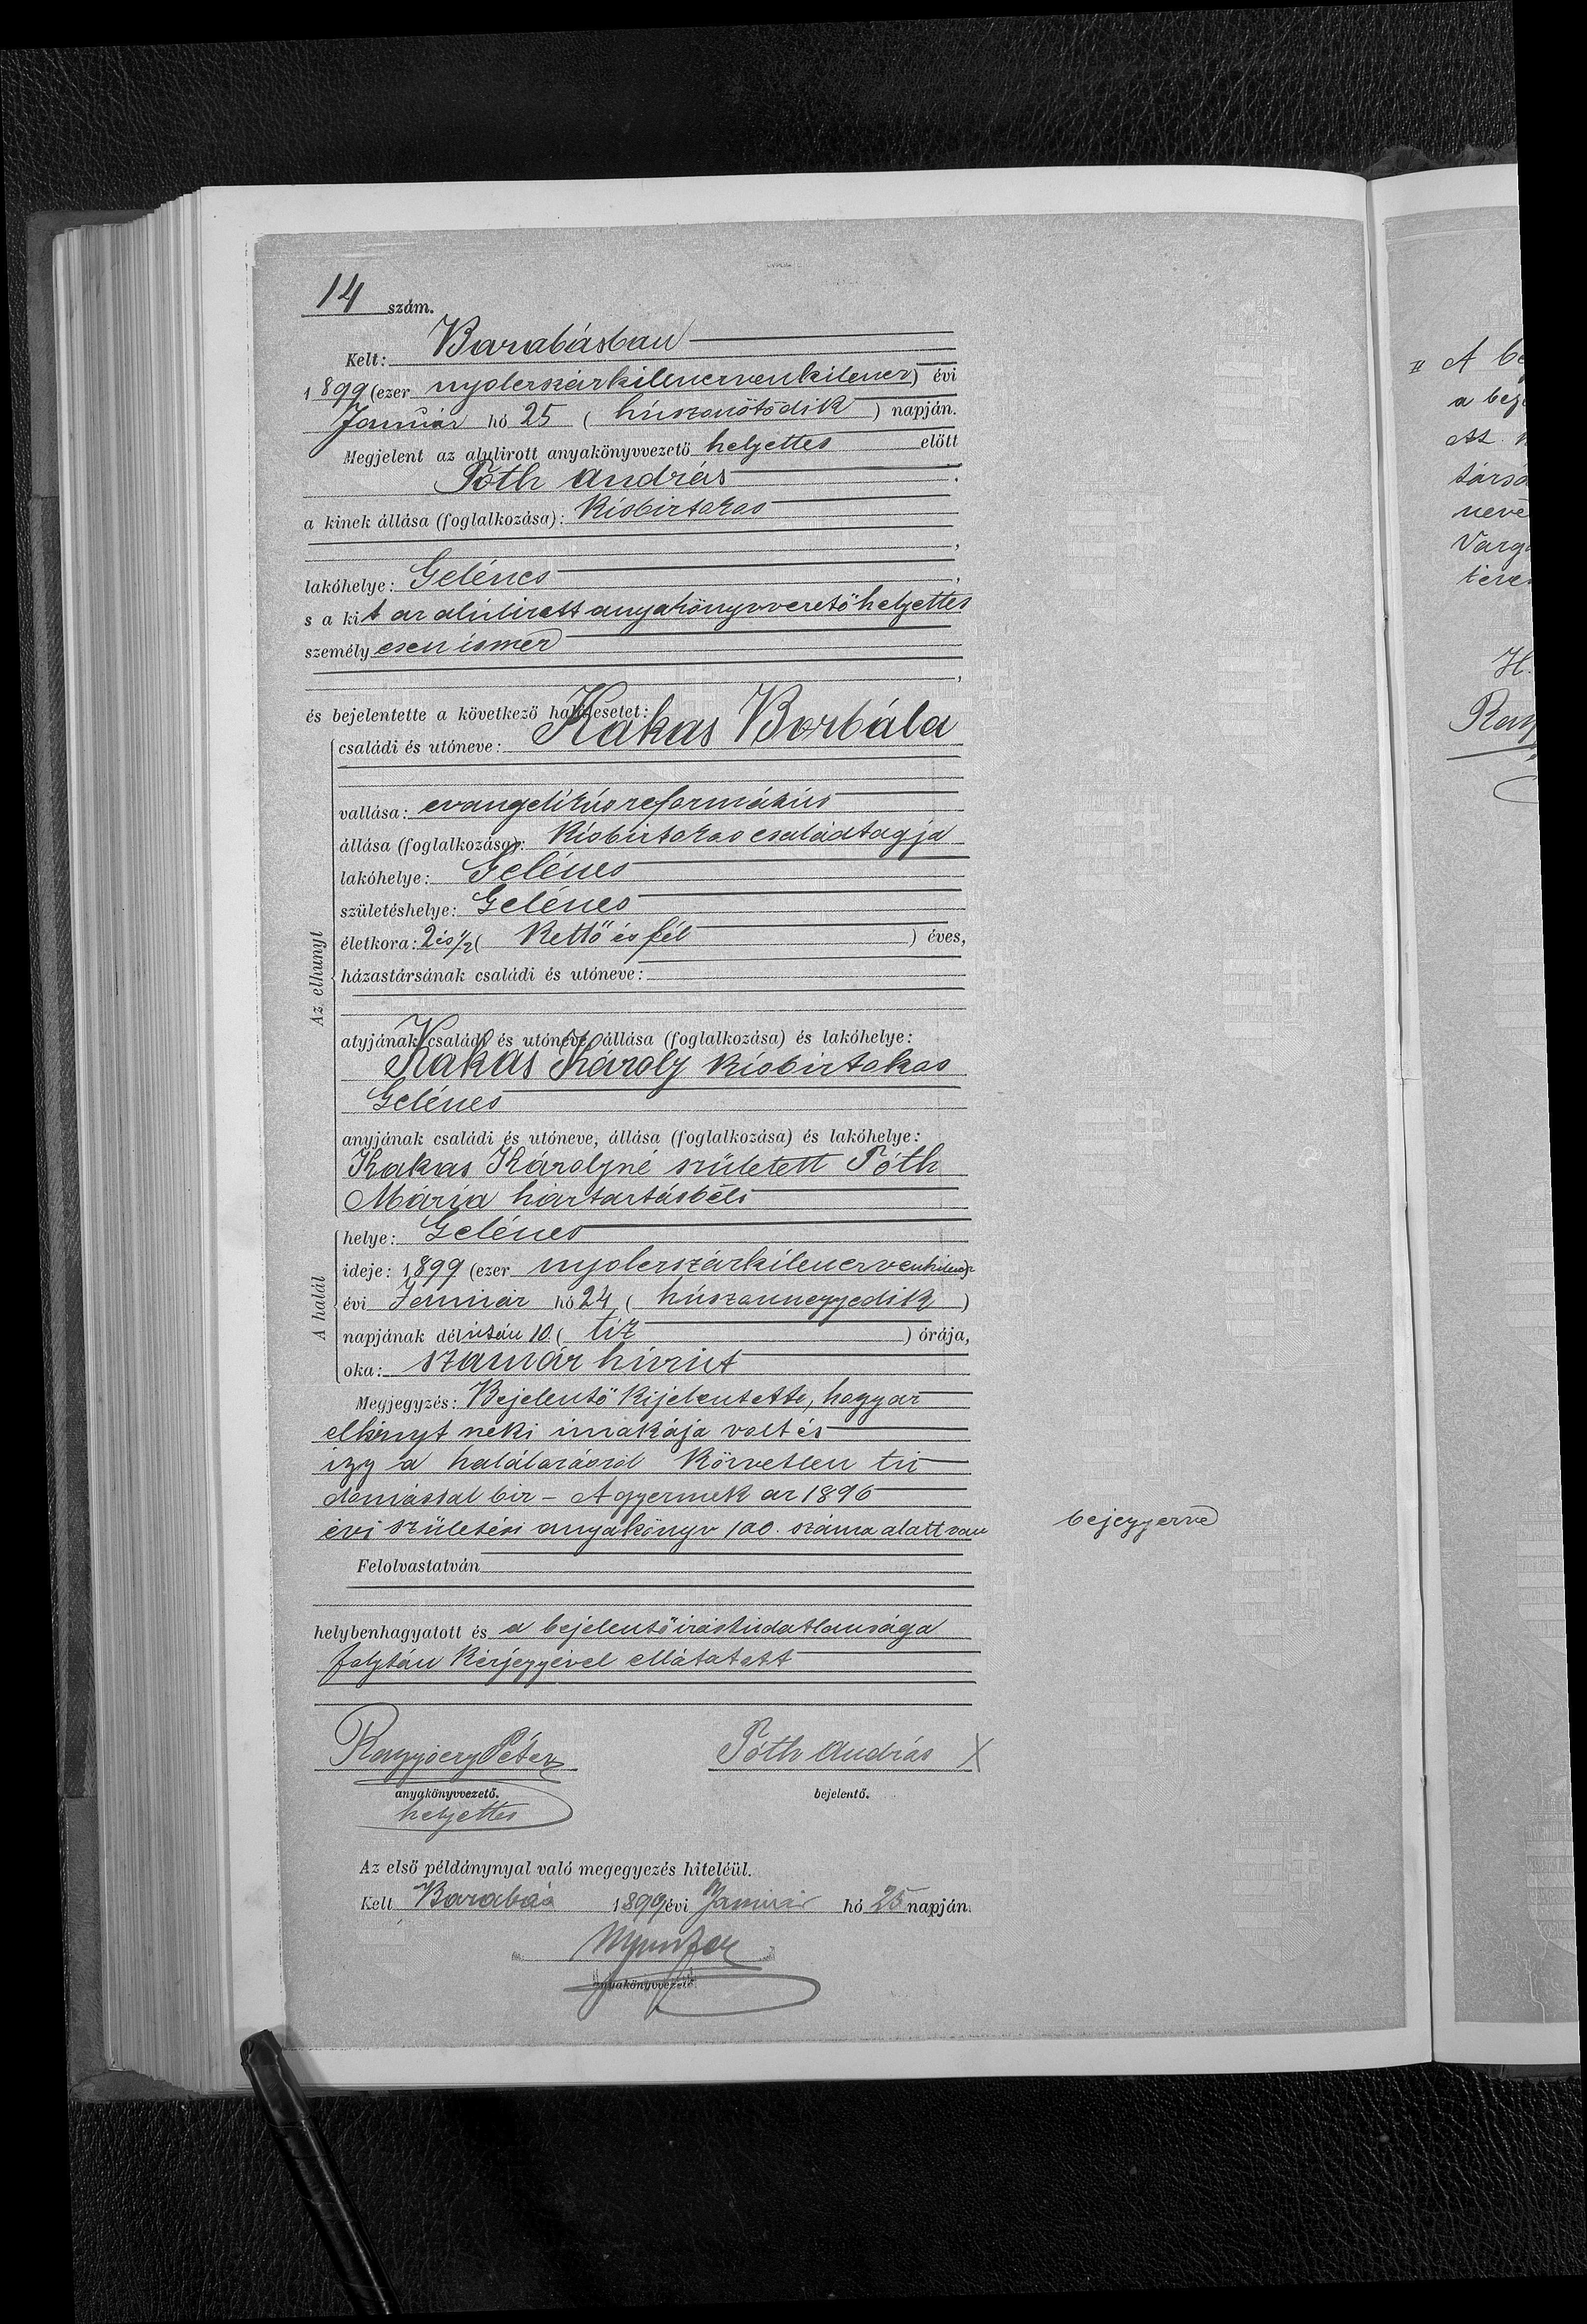 14 szám.
Kelt: Barabásban
1899 (ezer nyolcszázkilencvenkilenc) évi
Január hó 25 (húszonötödik) napján.
Megjelent az alulirott anyakönyvvezető helyettes előtt
Tóth András
a kinek állása (foglalkozása): Kisbirtokos
lakóhelye: Gelénes
s a kit az alúlirott anyakönyvvezető helyettes
személyesen ismer
és bejelentette a következő halálesetet:
Az elhunyt
családi és utóneve: Kakas Borbála
vallása: evangelikús református
állása (foglalkozása): Kisbirtokos családtagja
lakóhelye: Gelénes
születéshelye: Gelénes
életkora: 2 és 1/2 ( Kettő és fél ) éves,
házastársának családi és utóneve:
atyjának családi és utóneve, állása (foglalkozása) és lakóhelye:
Kakas Károly kisbirtokos
Gelénes
anyjának családi és utóneve, állása (foglalkozása) és lakóhelye:
Kakas Károlyné született Tóth
Mária háztartásbéli
A halál
helye: Gelénes
ideje: 1899 (ezer nyolcszázkilencvenkilenc)
évi Január hó 24 ( húszonnegyedik )
napjának délután 10 ( tíz ) órája,
oka: szamár húrut
Megjegyzés: Bejelentő kijelentette, hogy az
elhúnyt neki únokája volt és
így a halálozásról közvetlen tú
domással bír – A gyermek az 1896
évi születési anyakönyv 100. száma alatt van bejegyezve
Felolvastatván
helybenhagyatott és a bejelentő írástúdatlansága
folytán kézjegyével ellátatott
Péter Tóth András X
anyakönyvvezető. bejelentő.
helyettes
Az első példánynyal való megegyezés hiteléül.
Kelt Barabás 1899 évi Január hó 25 napján.
anyakönyvvezető
A be
a beje
társá
neve
Varg
H.